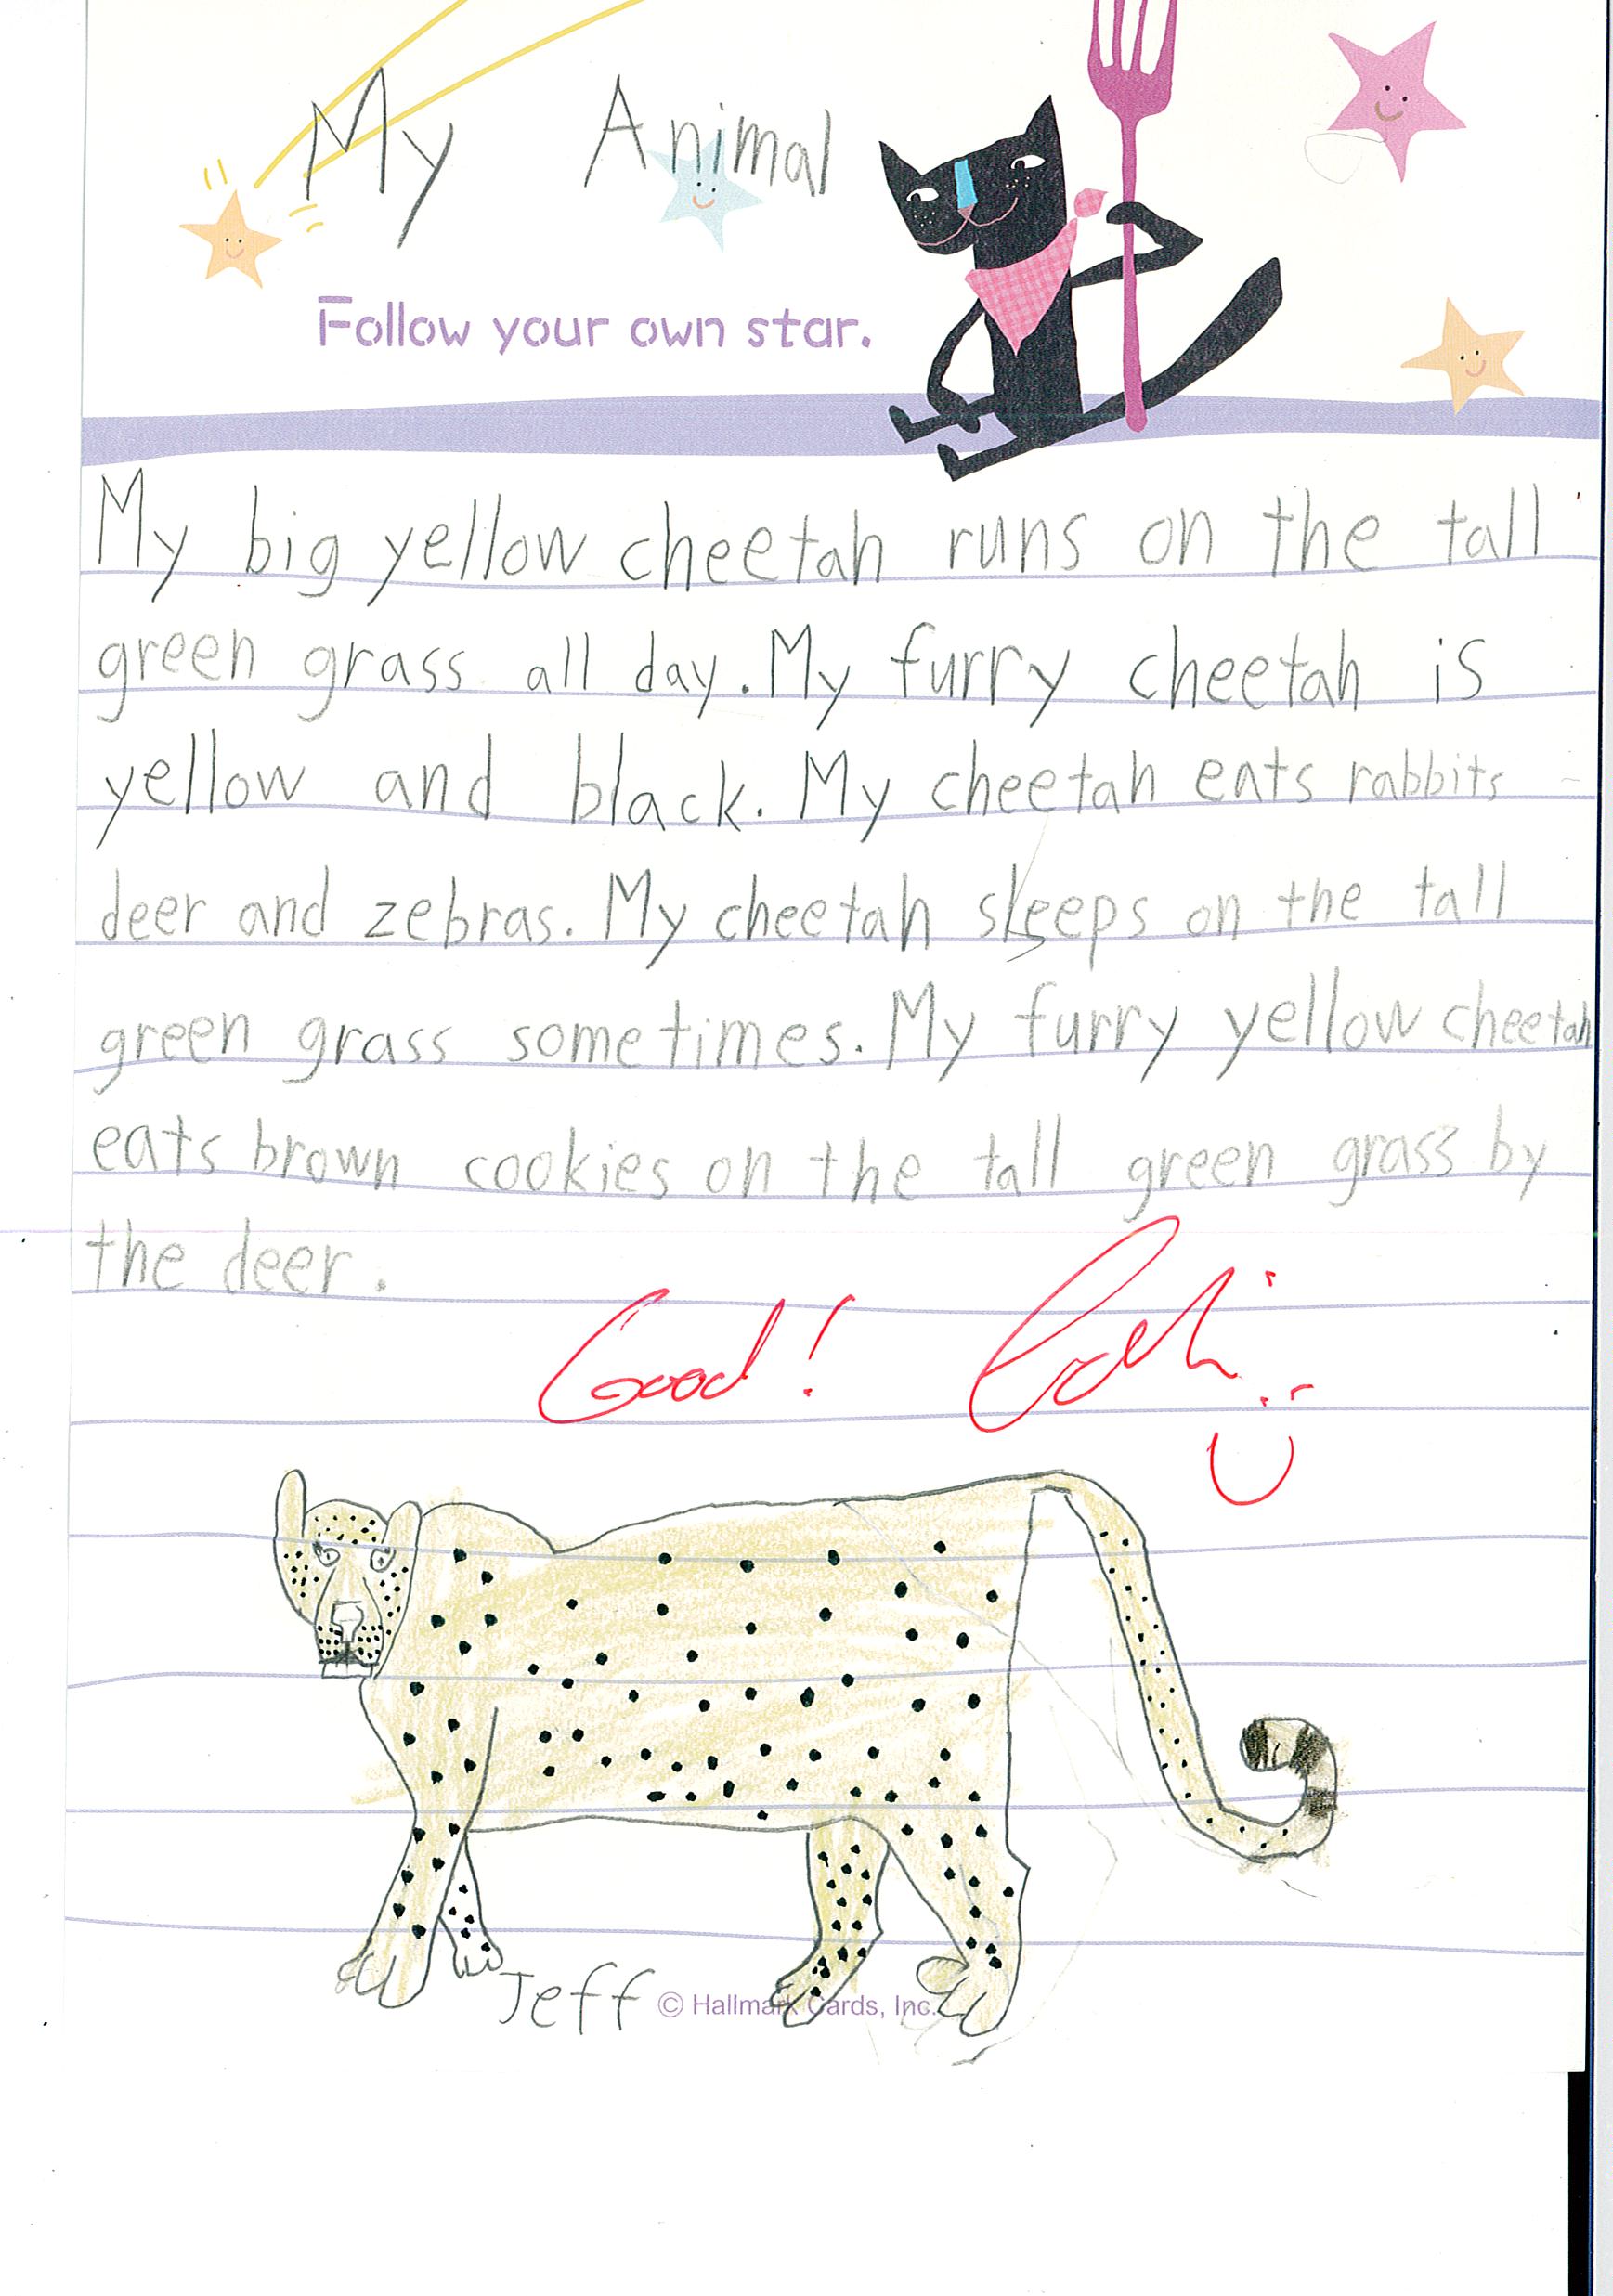 My Animal
Follow your own star.
My big yellow cheetah runs on the tall
green grass all day. My furry cheetah is
yellow and black. My cheetah eats rabbits
deer and zebras. My cheetah sleeps on the tall
green grass sometimes. My furry yellow cheetah
eats brown cookies on the tall green grass by
the deer.
Good!
Jeff © Hallmark Cards, Inc.